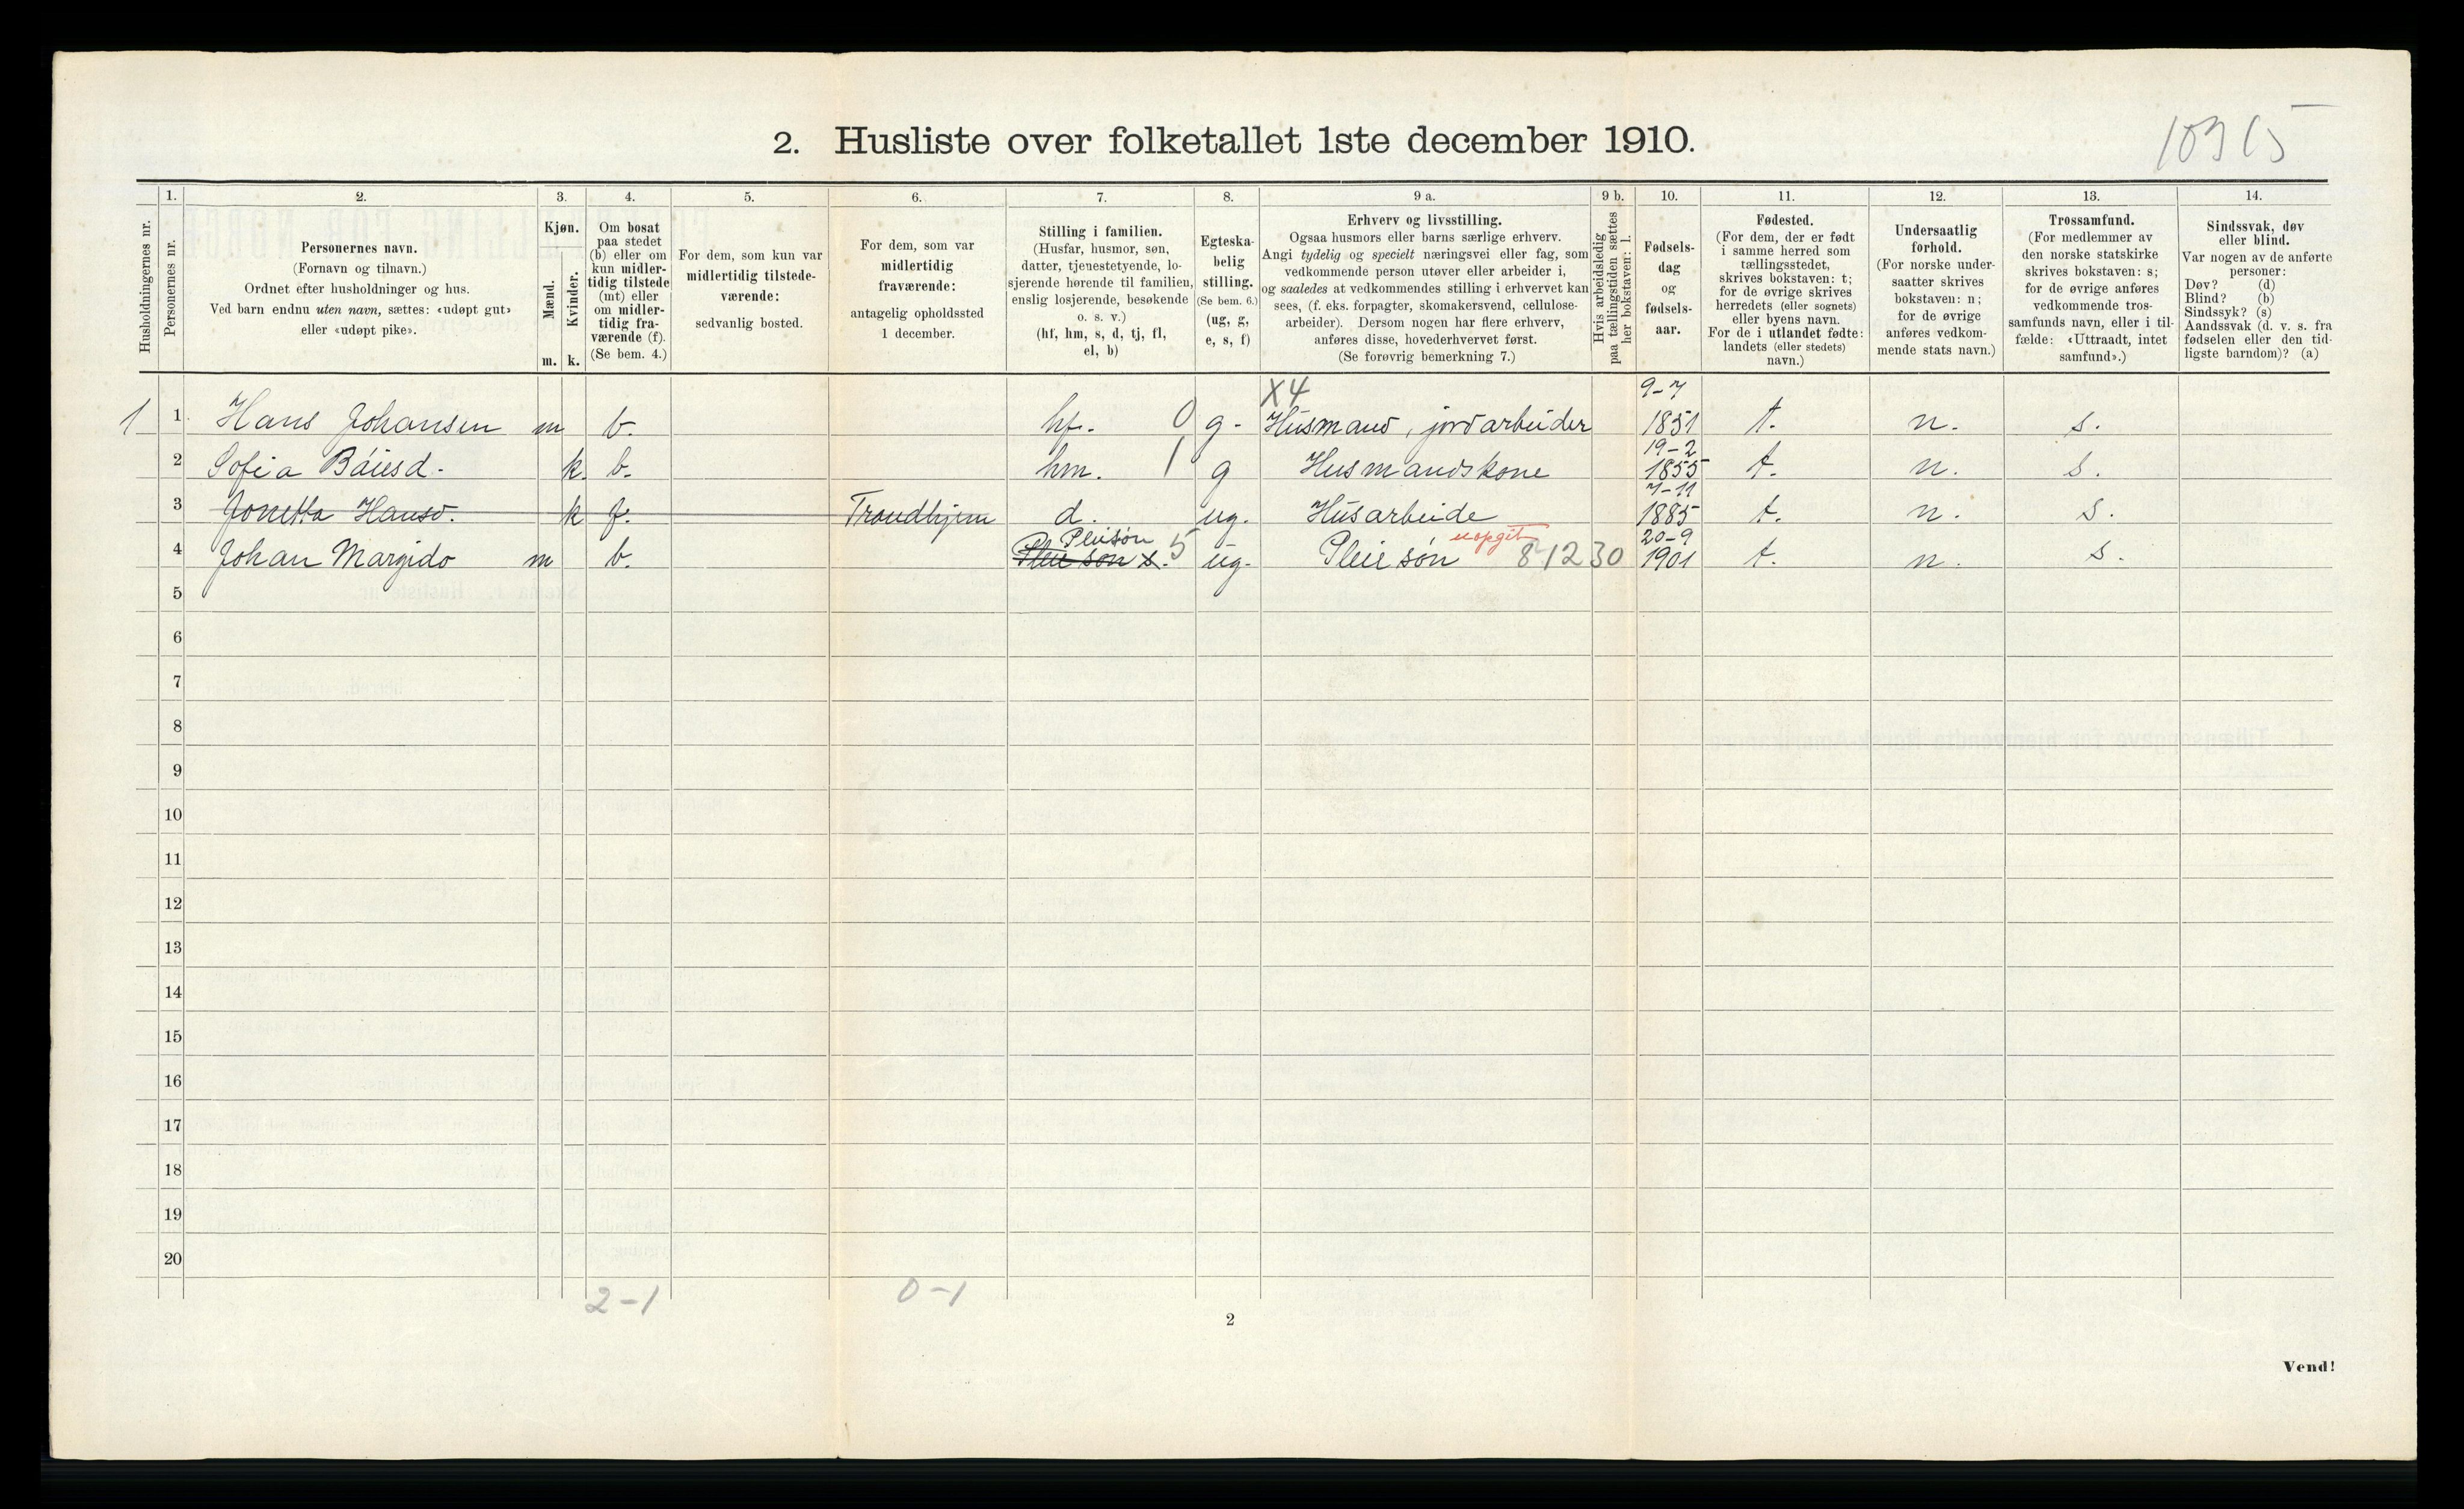 2. Husliste over folketallet 1ste december 1910.
10915
Husholdningernes nr.
1.
Personernes nr.
2.
Personernes navn.
(Fornavn og tilnavn.)
Ordnet efter husholdninger og hus.
Ved barn endnu uten navn, sættes: «udøpt gut»
eller «udøpt pike».
3.
Kjøn.
Mænd.
Kvinder.
m. k.
4.
Om bosat
paa stedet
(b) eller om
kun midler-
tidig tilstede
(mt) eller
om midler-
tidig fra-
værende (f).
(Se bem. 4.)
5.
For dem, som kun var
midlertidig tilstede-
værende:
sedvanlig bosted.
6.
For dem, som var
midlertidig
fraværende:
antagelig opholdssted
1 december.
7.
Stilling i familien.
(Husfar, husmor, søn,
datter, tjenestetyende, lo-
sjerende hørende til familien,
enslig losjerende, besøkende
o. s. v.)
(hf, hm, s, d, tj, fl,
el, b)
8.
Egteska-
belig
stilling.
(Se bem. 6.)
(ug, g,
e, s, f)
9 a.
Erhverv og livsstilling.
Ogsaa husmors eller barns særlige erhverv.
Angi tydelig og specielt næringsvei eller fag, som
vedkommende person utøver eller arbeider i,
og saaledes at vedkommendes stilling i erhvervet kan
sees, (f. eks. forpagter, skomakersvend, cellulose-
arbeider). Dersom nogen har flere erhverv,
anføres disse, hovederhvervet først.
(Se forøvrig bemerkning 7.)
9 b.
Hvis arbeidsledig
paa tællingstiden sættes
her bokstaven: l.
10.
Fødsels-
dag
og
fødsels-
aar.
11.
Fødested.
(For dem, der er født
i samme herred som
tællingsstedet,
skrives bokstaven: t;
for de øvrige skrives
herredets (eller sognets)
eller byens navn.
For de i utlandet fødte:
landets (eller stedets)
navn.)
12.
Undersaatlig
forhold.
(For norske under-
saatter skrives
bokstaven: n;
for de øvrige
anføres vedkom-
mende stats navn.)
13.
Trossamfund.
(For medlemmer av
den norske statskirke
skrives bokstaven: s;
for de øvrige anføres
vedkommende tros-
samfunds navn, eller i til-
fælde: «Uttraadt, intet
samfund».)
14.
Sindssvak, døv
eller blind.
Var nogen av de anførte
personer:
Døv? (d)
Blind? (b)
Sindssyk? (s)
Aandssvak (d. v. s. fra
fødselen eller den tid-
ligste barndom)? (a)
X4 9-7
1 1 Hans Johansen m b. hf. 0 g. Husmand, jordarbeider 1851 t. n. s.
19-2
2 Sofia Baiesd. k. b. hm. 1 g Husmandskone 1855 t. n. s.
7-11
3 Jonetta Hansd. k f. Trondhjem d. ug. Husarbeide 1885 t. n. s.
Pleisøn uopgit 20-9
4 Johan Margido m b. Pleie søn s. 5 ug. Pleie søn 81230 1901 t. n. s.
5
6
7
8
9
10
11
12
13
14
15
16
17
18
19
20
2-1 0-1
2
Vend!